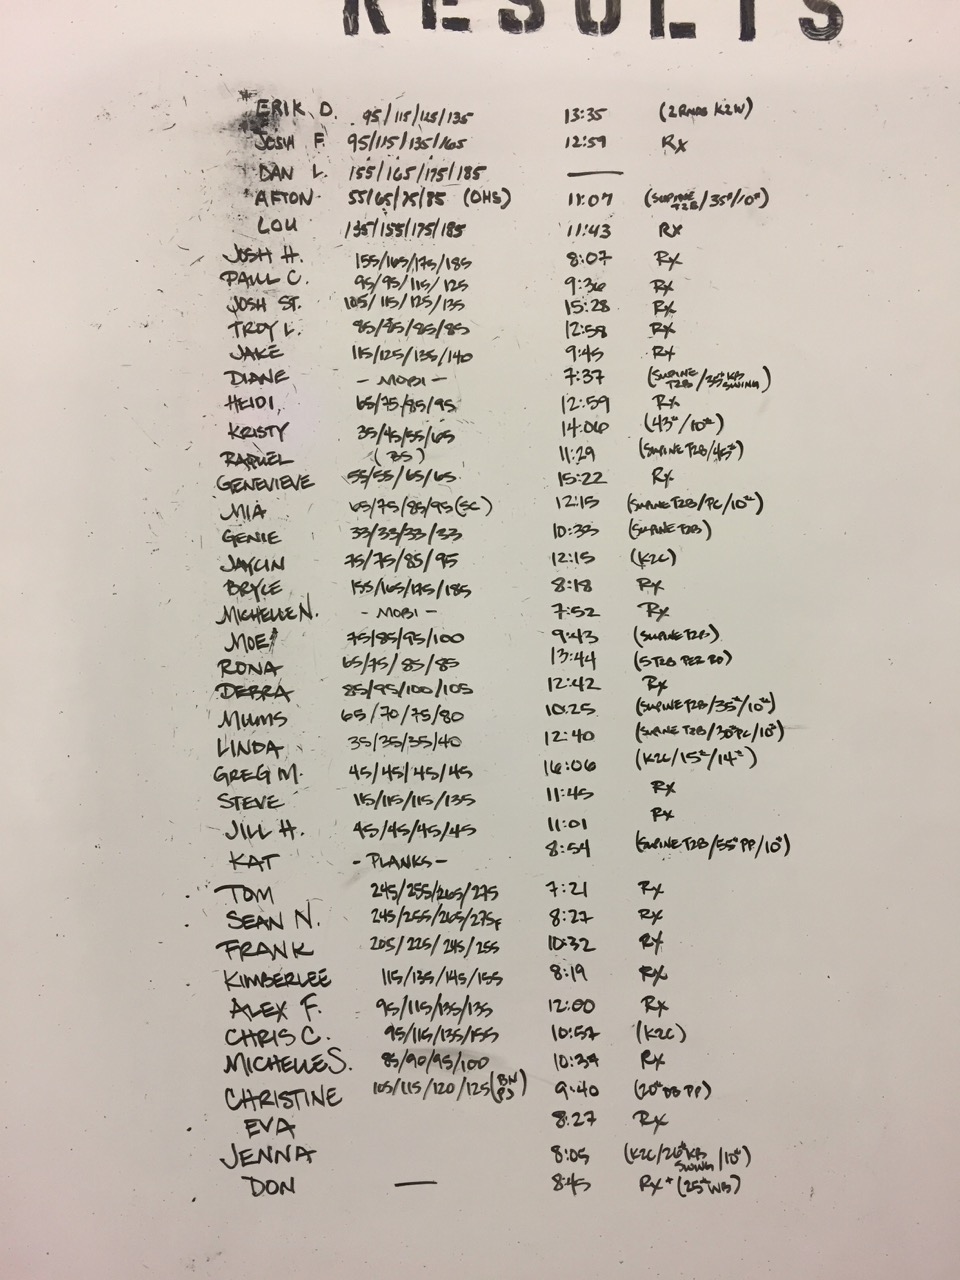 RESULTS
ERIK D. 95/115/125/135 13:35 (2RNDS K2W)
JOSH F. 95/115/135/165 12:59 Rx
DAN L. 155/165/175/185 —
AFTON 55/65/75/85 (OHS) 11:07 (SUPINE T2B/35#/10#)
LOU 135/155/175/185 11:43 Rx
JOSH H. 155/165/175/185 8:07 Rx
PAUL C. 95/95/115/125 9:36 Rx
JOSH ST. 105/115/125/135 15:28 Rx
TROY L. 85/85/85/85 12:58 Rx
JAKE 115/125/135/140 9:45 Rx
DIANE - MOBI - 7:37 (SUPINE T2B/35# KB SWING)
HEIDI 65/75/85/95 12:59 Rx
KRISTY 35/45/55/65 14:06 (43#/10#)
RAQUEL (BS) 11:29 (SUPINE T2B/45#)
GENEVIEVE 55/55/65/65 15:22 Rx
MIA 65/75/85/95 (SC) 12:15 (SUPINE T2B/PC/10#)
GENIE 33/33/33/33 10:35 (SUPINE T2B)
JAYLIN 75/75/85/95 12:15 (K2C)
BRYCE 155/165/175/185 8:18 Rx
MICHELLE N. - MOBI - 7:52 Rx
MOE 75/85/95/100 9:43 (SUPINE T2B)
RONA 65/75/85/85 13:44 (5T2B PER RD)
DEBRA 85/95/100/105 12:42 Rx
MUMS 65/70/75/80 10:25 (SUPINE T2B/35#/10#)
LINDA 35/35/35/40 12:40 (SUPINE T2B/30# PC/10#)
GREG M. 45/45/45/45 16:06 (K2C/15#/14#)
STEVE 115/115/115/135 11:45 Rx
JILL H. 45/45/45/45 11:01 Rx
KAT - PLANKS - 8:54 (SUPINE T2B/55# PP/10#)
TOM 245/255/265/275 7:21 Rx
SEAN N. 245/255/265/275F 8:27 Rx
FRANK 205/225/245/255 10:32 Rx
KIMBERLEE 115/135/145/155 8:19 Rx
ALEX F. 95/115/135/135 12:00 Rx
CHRIS C. 95/115/135/155 10:57 (K2C)
MICHELLE S. 85/90/95/100 10:39 Rx
CHRISTINE 105/115/120/125 (BN PJ) 9:40 (20# DB PP)
EVA 8:27 Rx
JENNA 8:05 (K2C/26# KB SWING/10#)
DON — 8:45 Rx+ (25# WB)